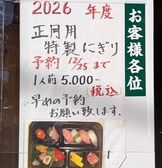 お客様各位
2026年度
正月用
特製にぎり
予約 12/25まで
1人前 5.000-
税込
早めの予約
お願い致します。